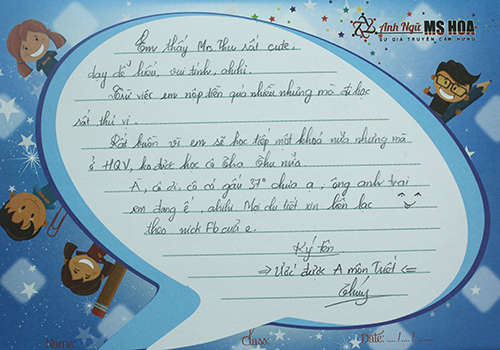 Anh Ngữ MS HOA
SỨ GIẢ TRUYỀN CẢM HỨNG
Em thấy Ms Thu rất cute,
dạy dễ hiểu, vui tính, ahihi.
Trừ việc em nộp tiền quá nhiều nhưng mà đi học
rất thú vị.
Rất buồn vì em sẽ học tiếp một khoá nữa nhưng mà
ở HQV, ko được học cô Tha Thu nữa
À, cô ơi, cô có gấu 37° chưa ạ, ông anh trai
em đang ế, ahihi Mọi chi tiết xin liên lạc
theo nick Fb của e.
Ký tên
⇒ Ước được A môn Triết ⇐
Thuy
Name:
Class:
Date: ..../..../....